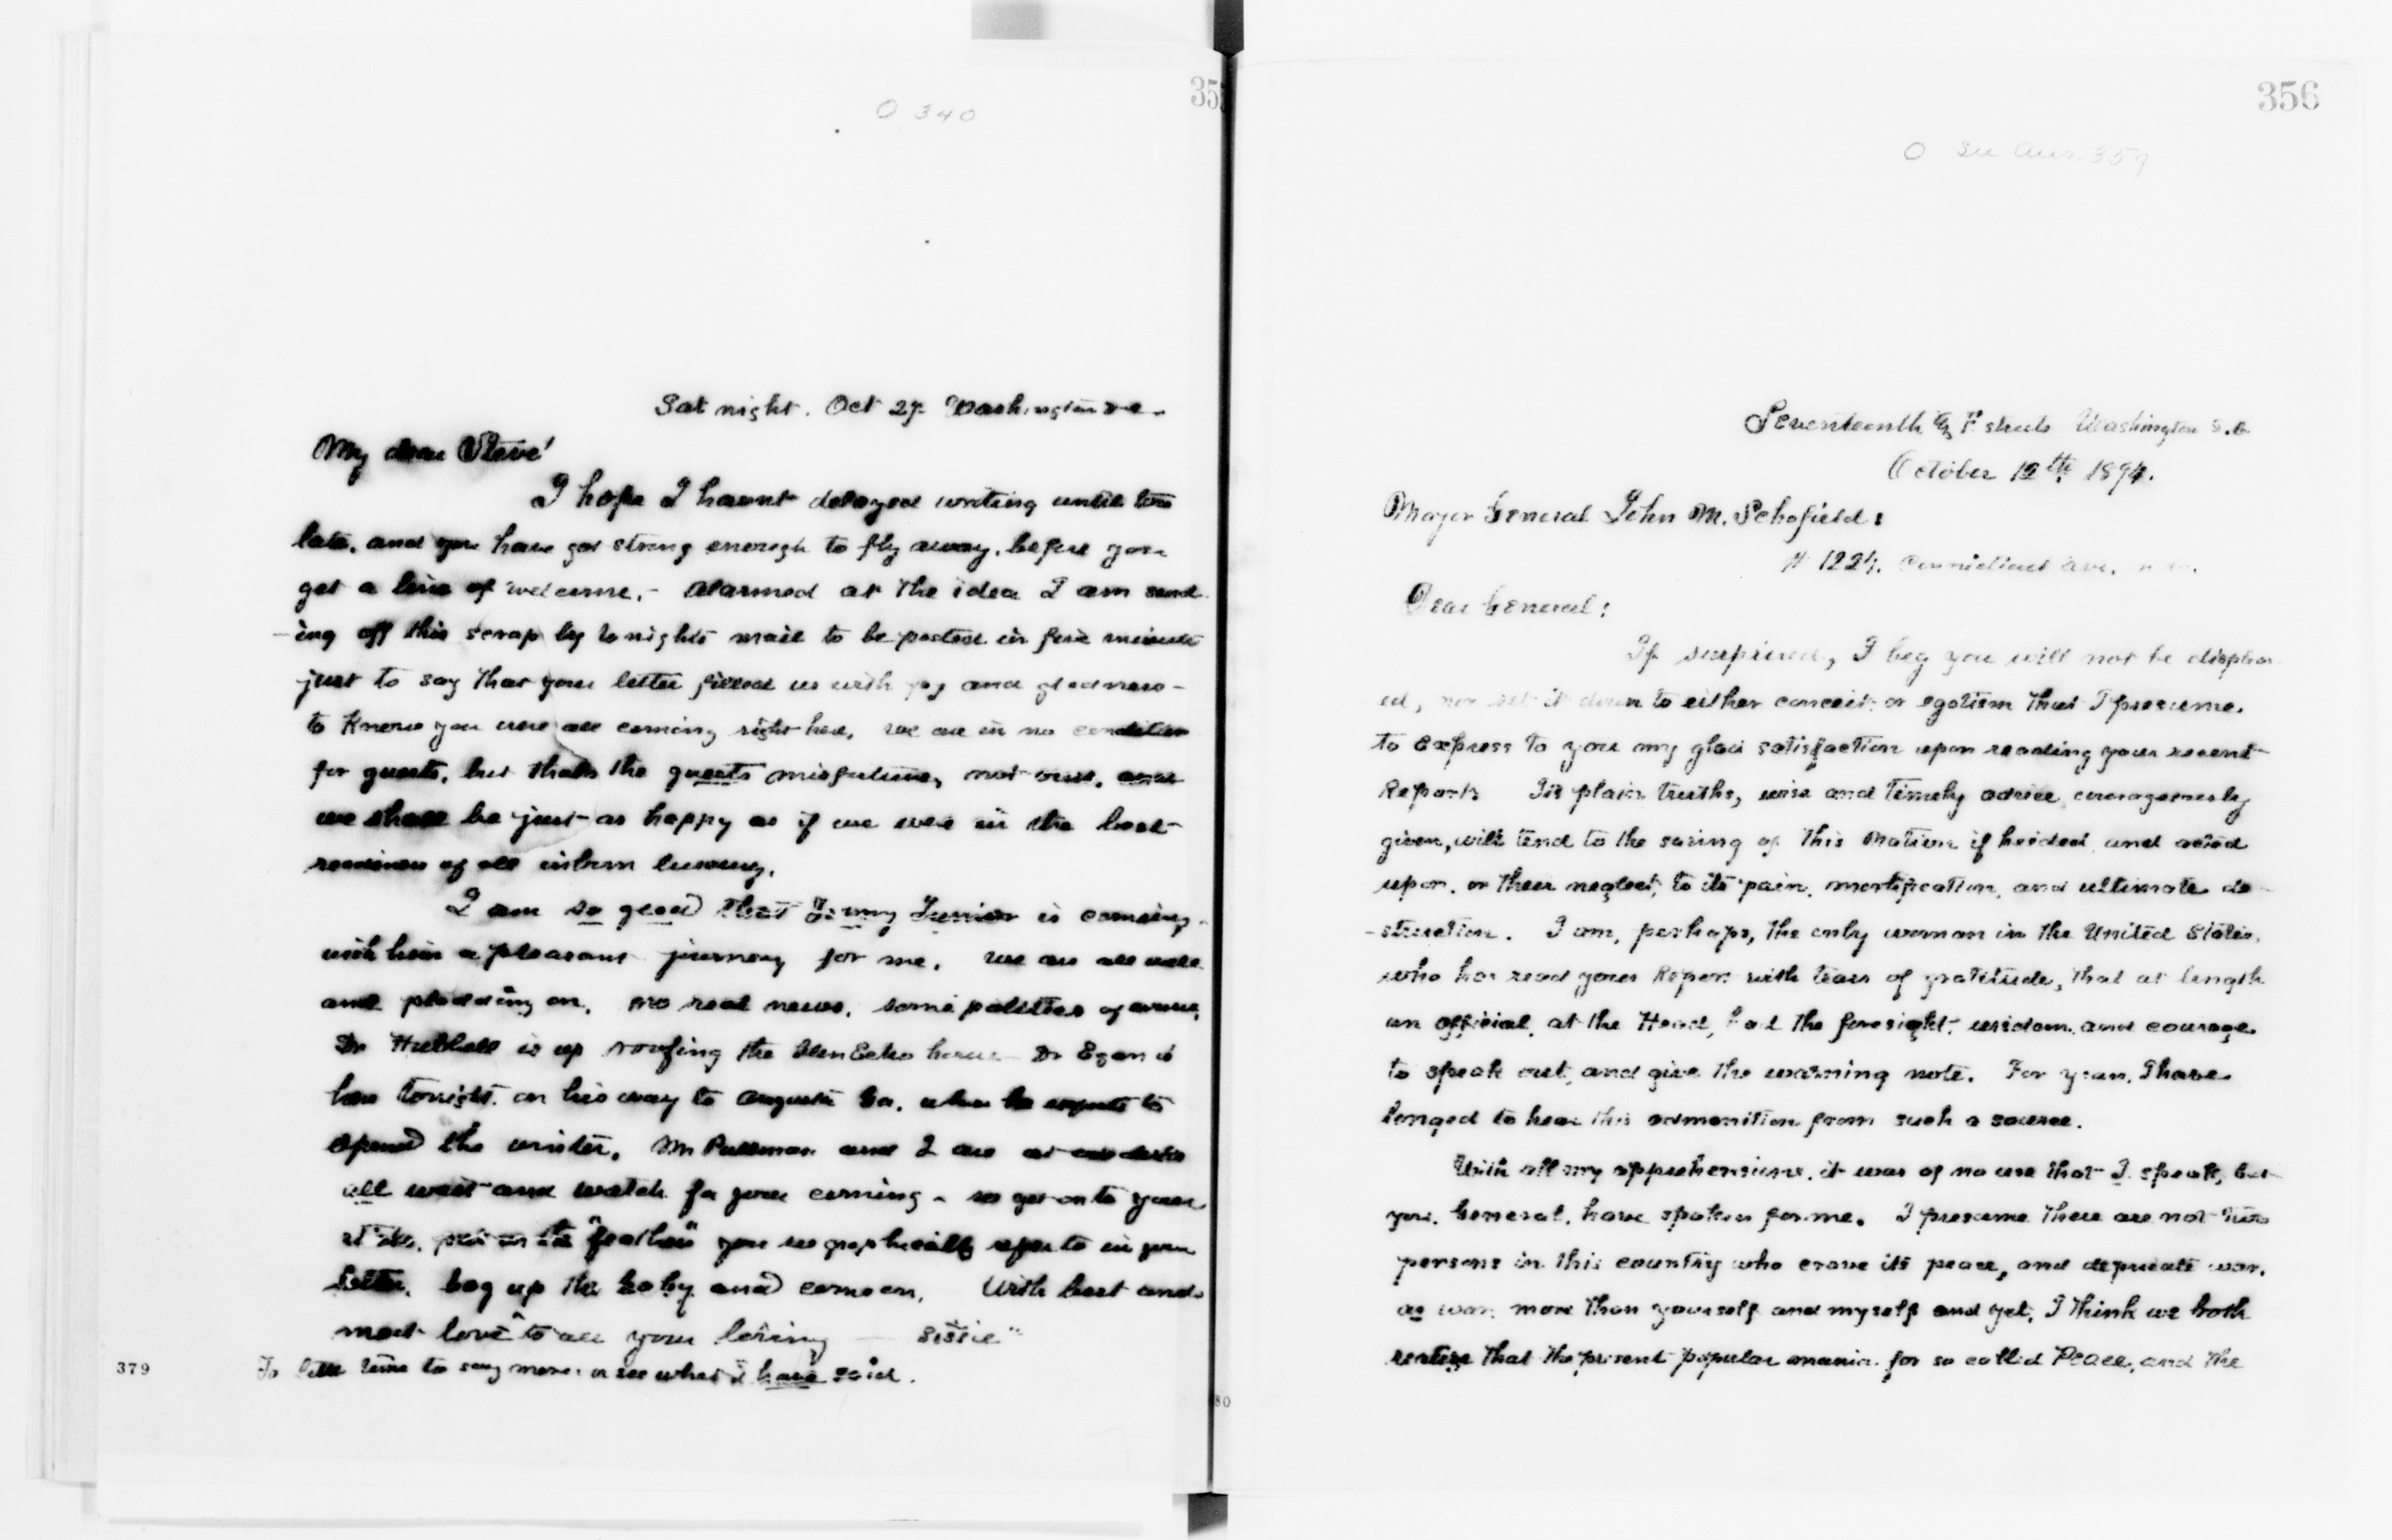 O 340
35
Sat night. Oct 27. Washington D.C.
My dear Steve!
I hope I havnt delayed writing until too
late. and you have got strong enough to fly away. before you
get a line of welcome. - Alarmed at the idea I am send
-ing off this scrap by tonights mail to be posted in five minutes
just to say that your letter filled us with joy and gladness -
to know you were all coming right here. we are in no condition
for guests. but thats the guests misfortune, not ours. and
we shall be just as happy as if we were in the best
readiness of all inborn luxury.
I am so glad that Junior is coming.
with him a pleasant journey for me. we are all well
and plodding on. no real news. some politics of course.
Dr Hubbell is up roofing the Glen Echo house Dr Egan is
here tonight. on his way to Augusta Ga. where he expects to
spend the winter. Mr Pullman and I are at our desks
all wait and watch for your coming - so get on to your
the "feathers" you so graphically refer to in your
letter. bag up the baby and come on. With best and
most love to all your loving - Sissie"
To little time to say more. or see what I have said.
379
356
O See Ans. 359
Seventeenth & F. streets Washington D.C.
October 12th 1894.
Major General John M. Schofield:
# 1224. Connecticut Ave. n.w.
Dear General:
If surprised, I beg you will not be displeas
ed, nor set it down to either conceit or egotism that I presume.
to express to you my glad satisfaction upon reading your recent
Report. Its plain truths, wise and timely advice courageously
given, will tend to the saving of this Nation if heeded and acted
upon. or their neglect, to its pain, mortification, and ultimate de
-struction. I am, perhaps, the only woman in the United States.
who has read your Report with tears of gratitude, that at length
an official, at the Head, had the foresight, wisdom and courage.
to speak out, and give the warning note. For years, I have
longed to hear this admonition from such a source.
With all my apprehensions. it was of no use that I speak, but
you, General, have spoken for me. I presume there are not two
persons in this country who crave its peace, and depricate war.
as war. more than yourself and myself and yet, I think we both
realize that the present popular mania for so called Peace, and the
80